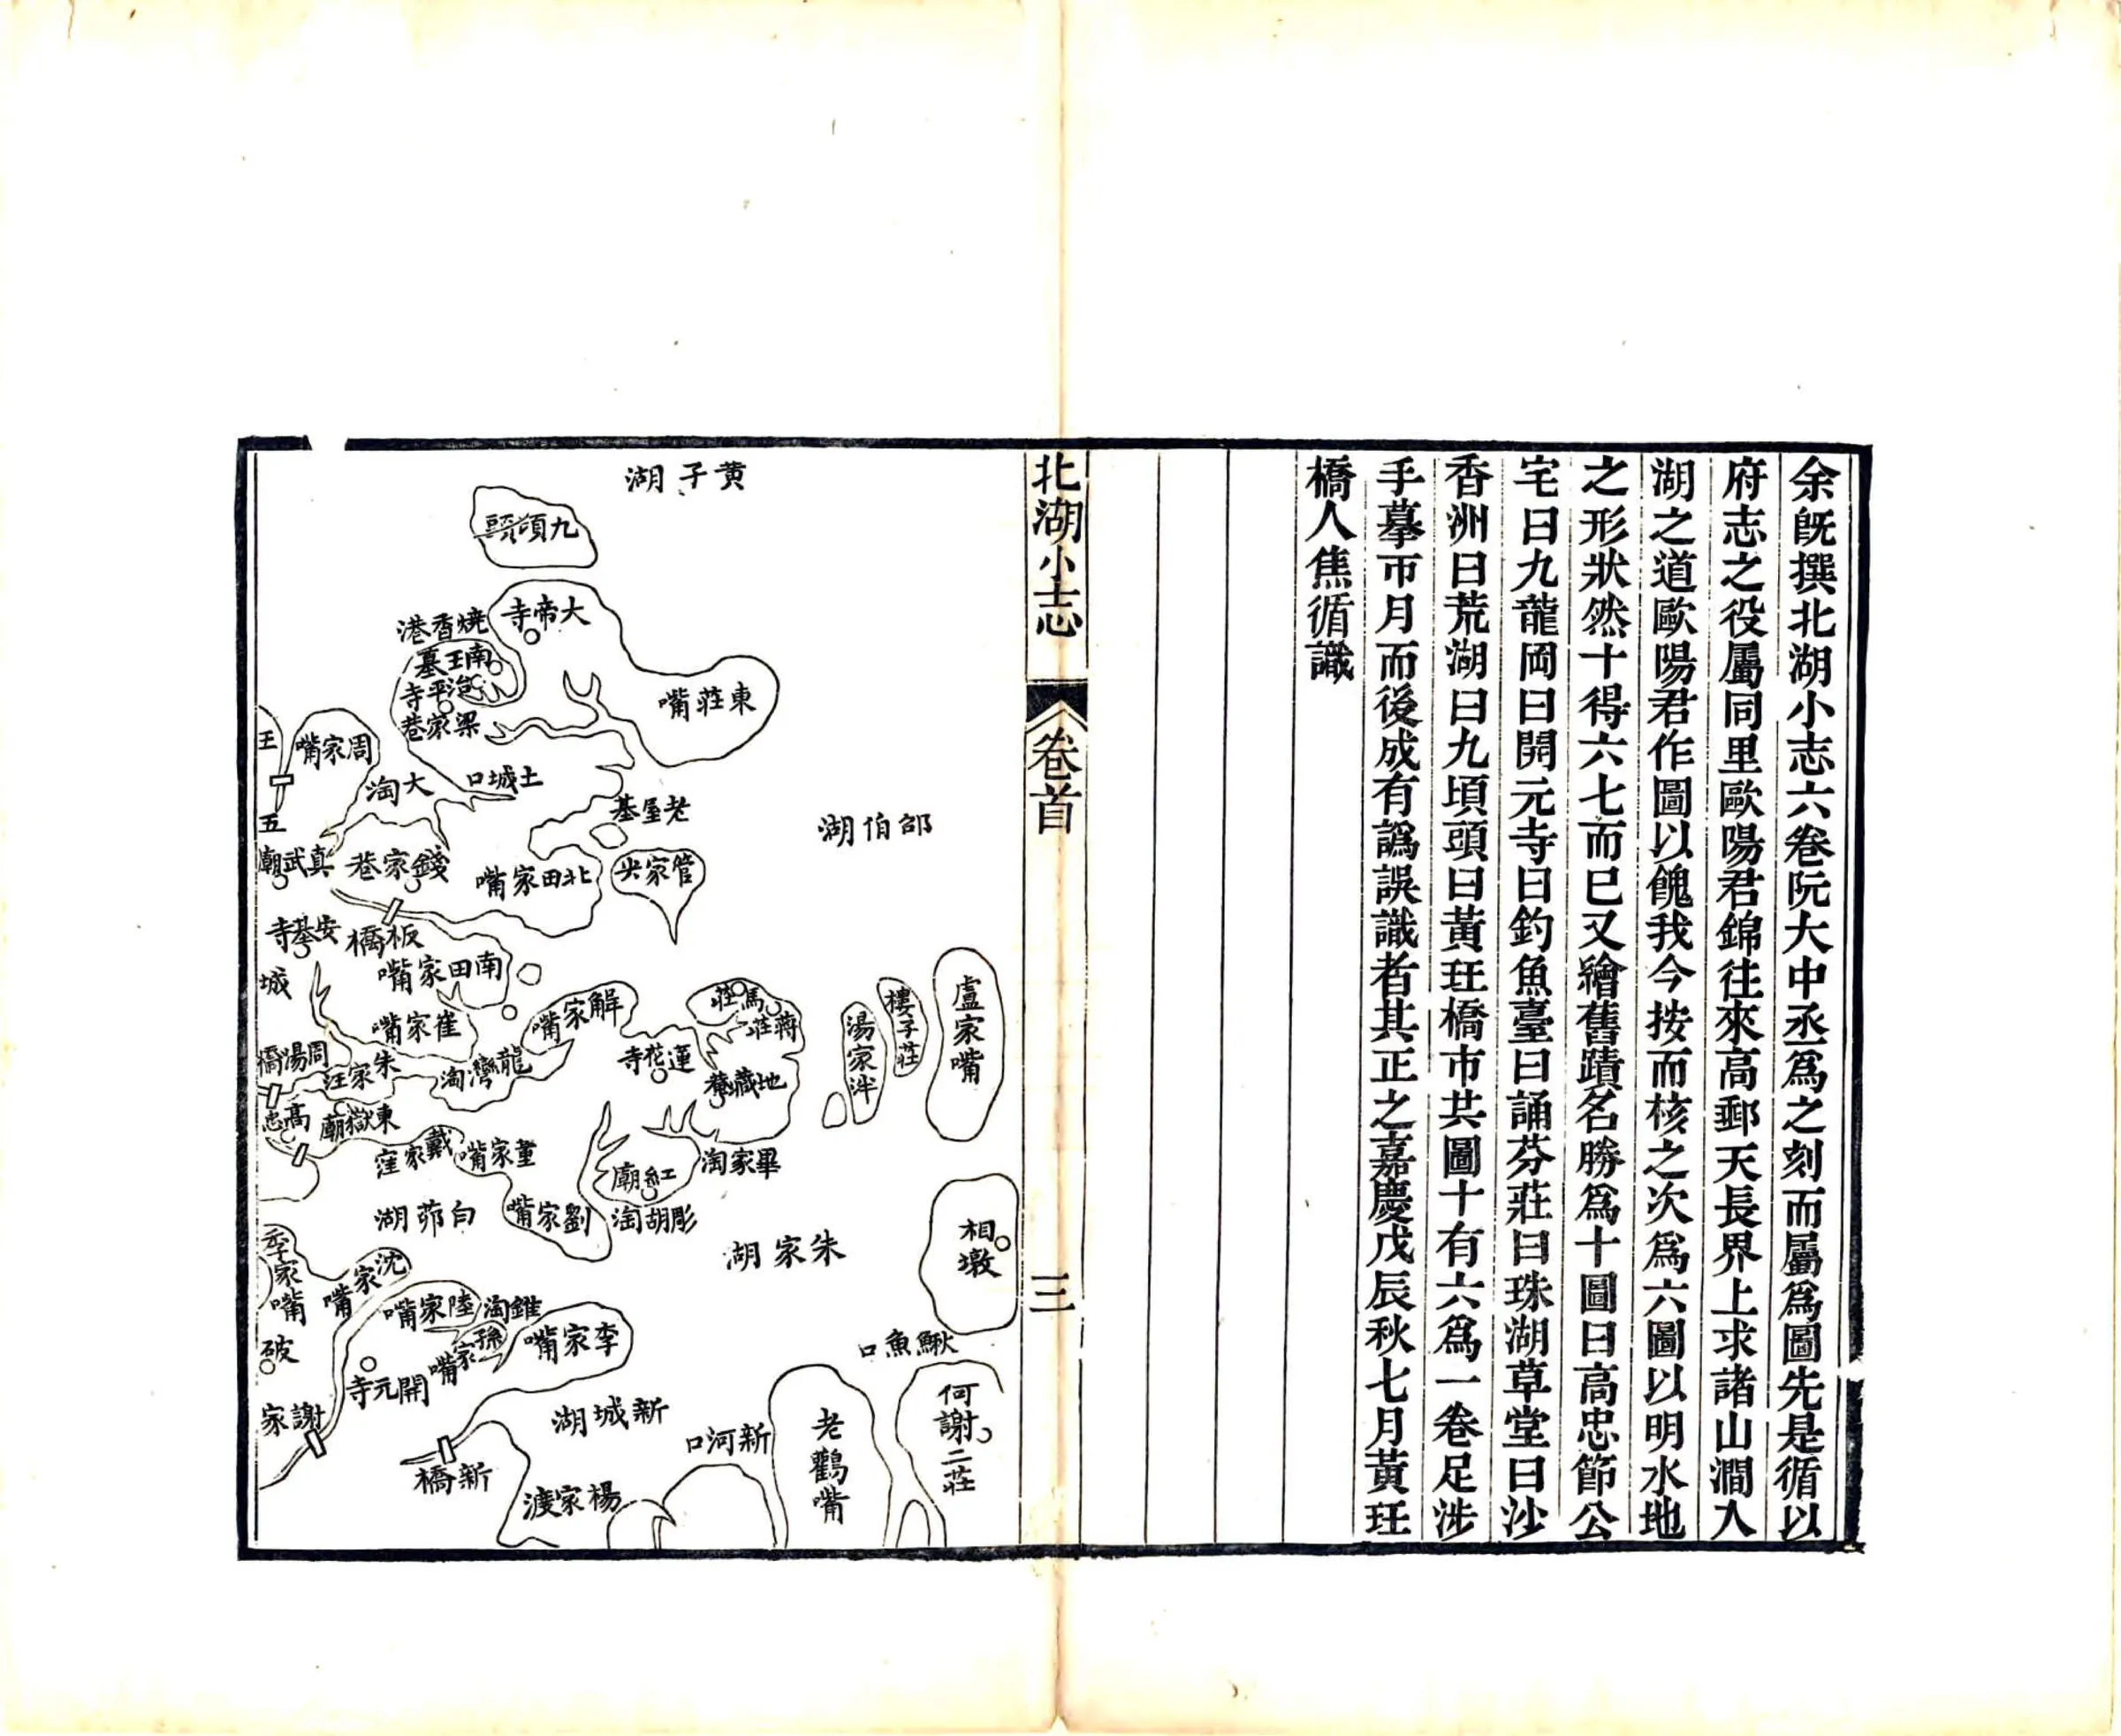 余既撰北湖小志六卷阮大中丞爲之刻而屬爲圖先是循以
府志之役屬同里歐陽君錦往來高郵天長界上求諸山澗入
湖之道歐陽君作圖以餽我今按而核之次爲六圖以明水地
之形狀然十得六七而已又繪舊蹟名勝爲十圖曰高忠節公
宅曰九龍岡曰開元寺曰釣魚臺曰誦芬莊曰珠湖草堂曰沙
香洲曰荒湖曰九頃頭曰黃珏橋市共圖十有六爲一卷足涉
手摹帀月而後成有譌誤識者其正之嘉慶戊辰秋七月黃珏
橋人焦循識
北湖小志
卷首
三
黃子湖
九頃
大帝寺
燒香港
南王墓
治平寺
梁家巷
東莊嘴
王
周家嘴
大淘
土城口
老屋基
邵伯湖
五
真武廟
錢家巷
北田家嘴
管家尖
安基寺
板橋
南田家嘴
城
崔家嘴
解家嘴
馬莊
蔣莊
樓子莊
盧家嘴
湯家泮
周湯橋
朱家汪
龍灣淘
蓮花寺
地藏菴
高忠
東嶽廟
戴家窪
童家嘴
紅廟
畢家淘
白茆湖
劉家嘴
彫胡淘
朱家湖
相墩
季家嘴
沈家嘴
陸家嘴
錐淘
孫家嘴
李家嘴
鰍魚口
破
開元寺
謝家
新城湖
新河口
老鸛嘴
何謝二莊
新橋
楊家渡